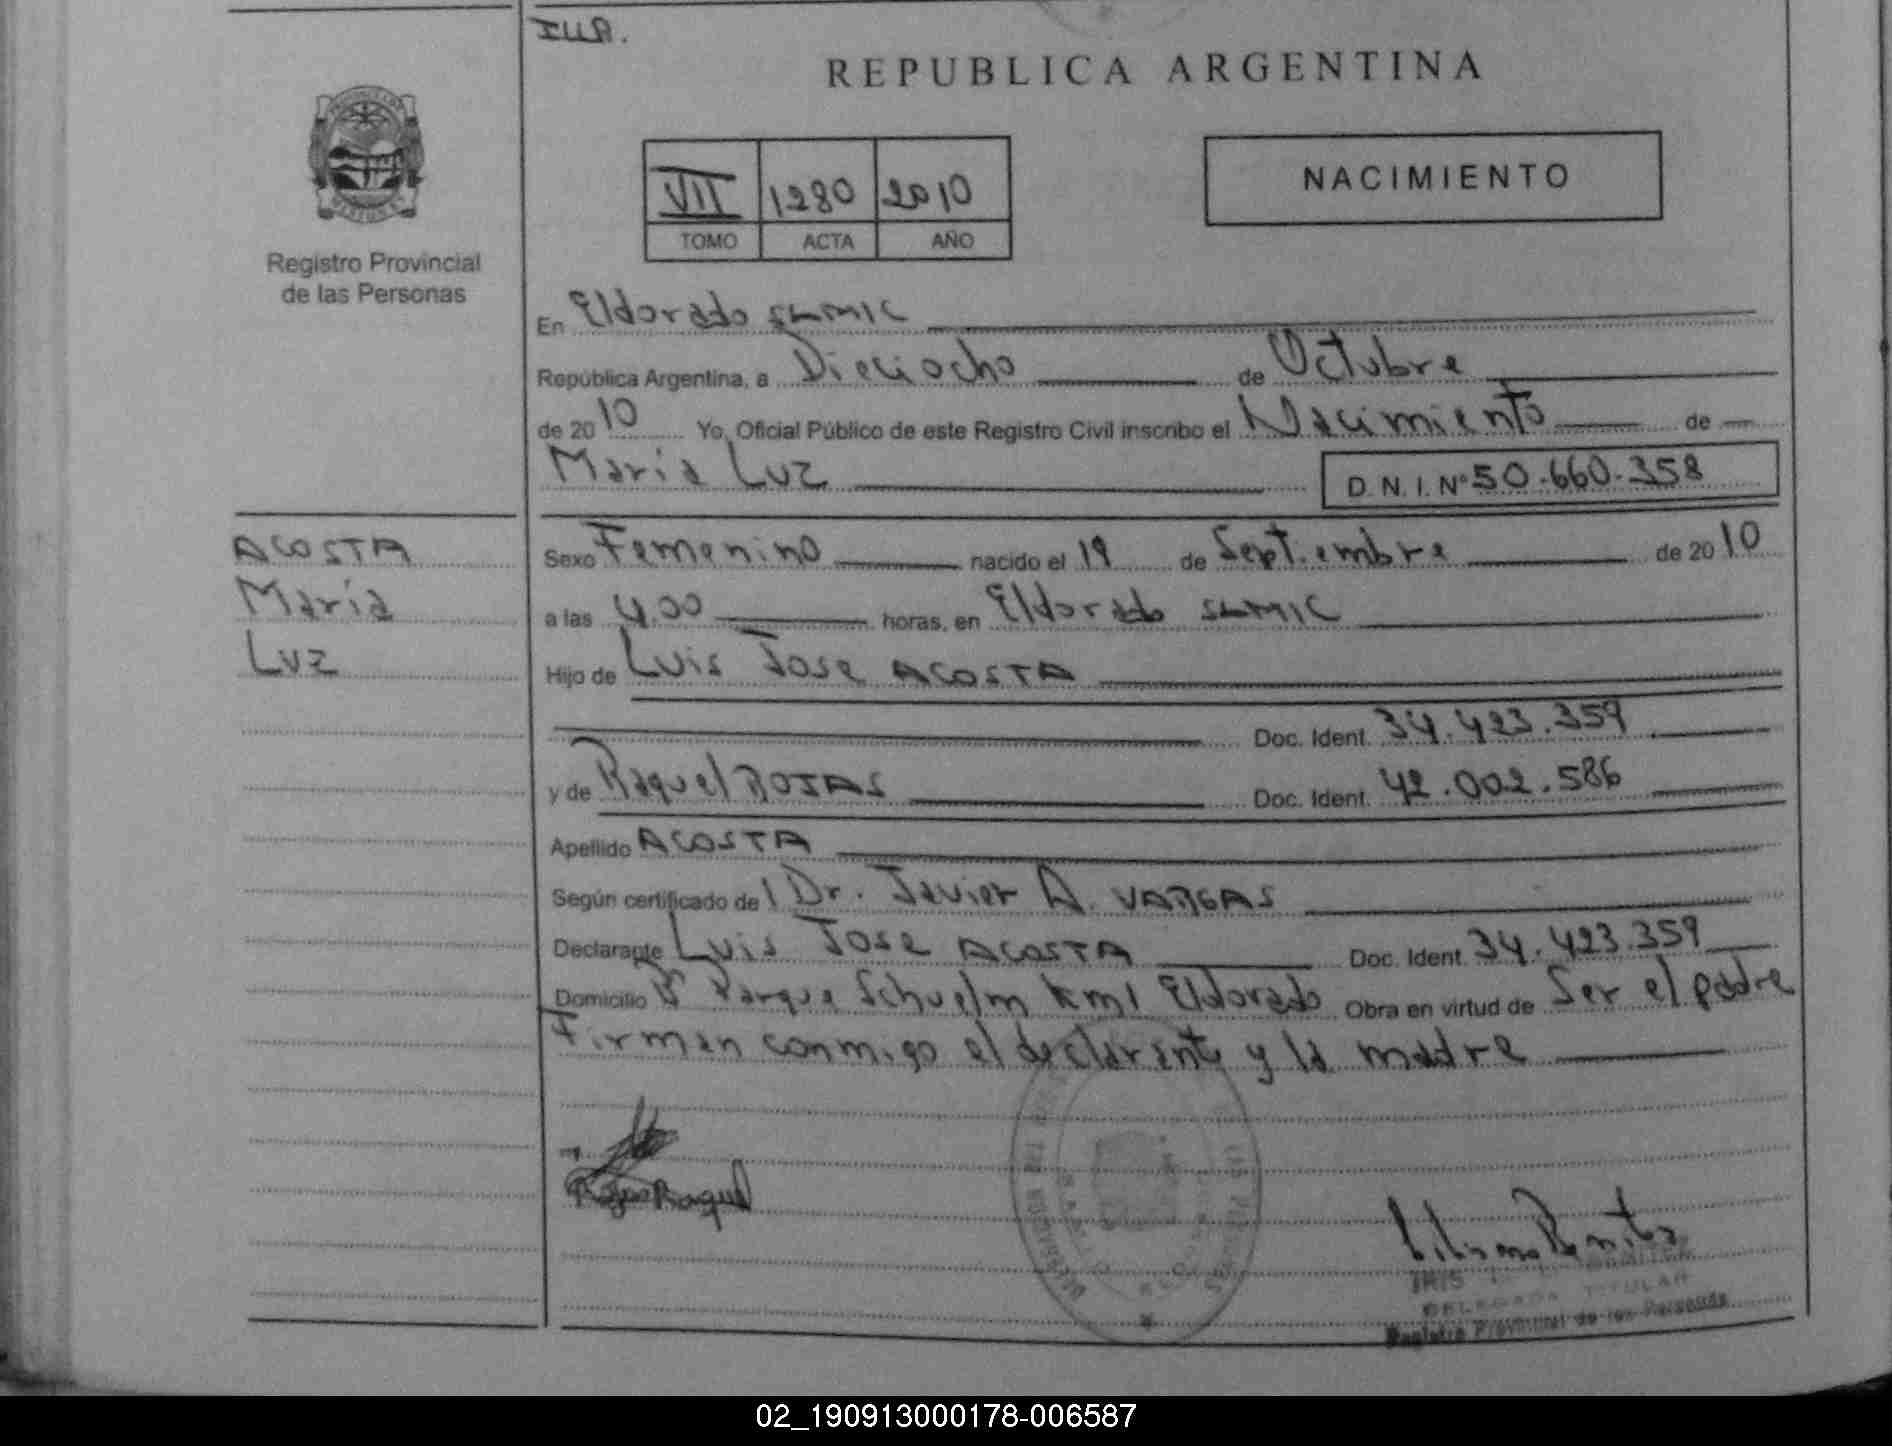 I.U.A.
REPUBLICA ARGENTINA
VII 1280 2010
TOMO ACTA AÑO
NACIMIENTO
Registro Provincial
de las Personas
En Eldorado SLMIC
República Argentina, a Dieciocho de Octubre
de 2010 Yo, Oficial Público de este Registro Civil inscribo el Nacimiento de
Maria Luz D.N.I. Nº 50.660.358
ACOSTA
María
Luz
Sexo Femenino nacido el 19 de Septiembre de 2010
a las 4.00 horas, en Eldorado SLMIC
Hijo de Luis Jose ACOSTA
Doc. Ident. 34.423.359
y de Raquel ROJAS Doc. Ident. 42.002.586
Apellido ACOSTA
Según certificado del Dr. Javier A. VARGAS
Declarante Luis Jose ACOSTA Doc. Ident. 34.423.359
Domicilio Bº Parque Schuelm km1 Eldorado Obra en virtud de Ser el padre
Firman conmigo el declarante y la madre
Rojas Raquel
IRIS
DELEGADA TITULAR
Registro Provincial de las Personas
02_190913000178-006587